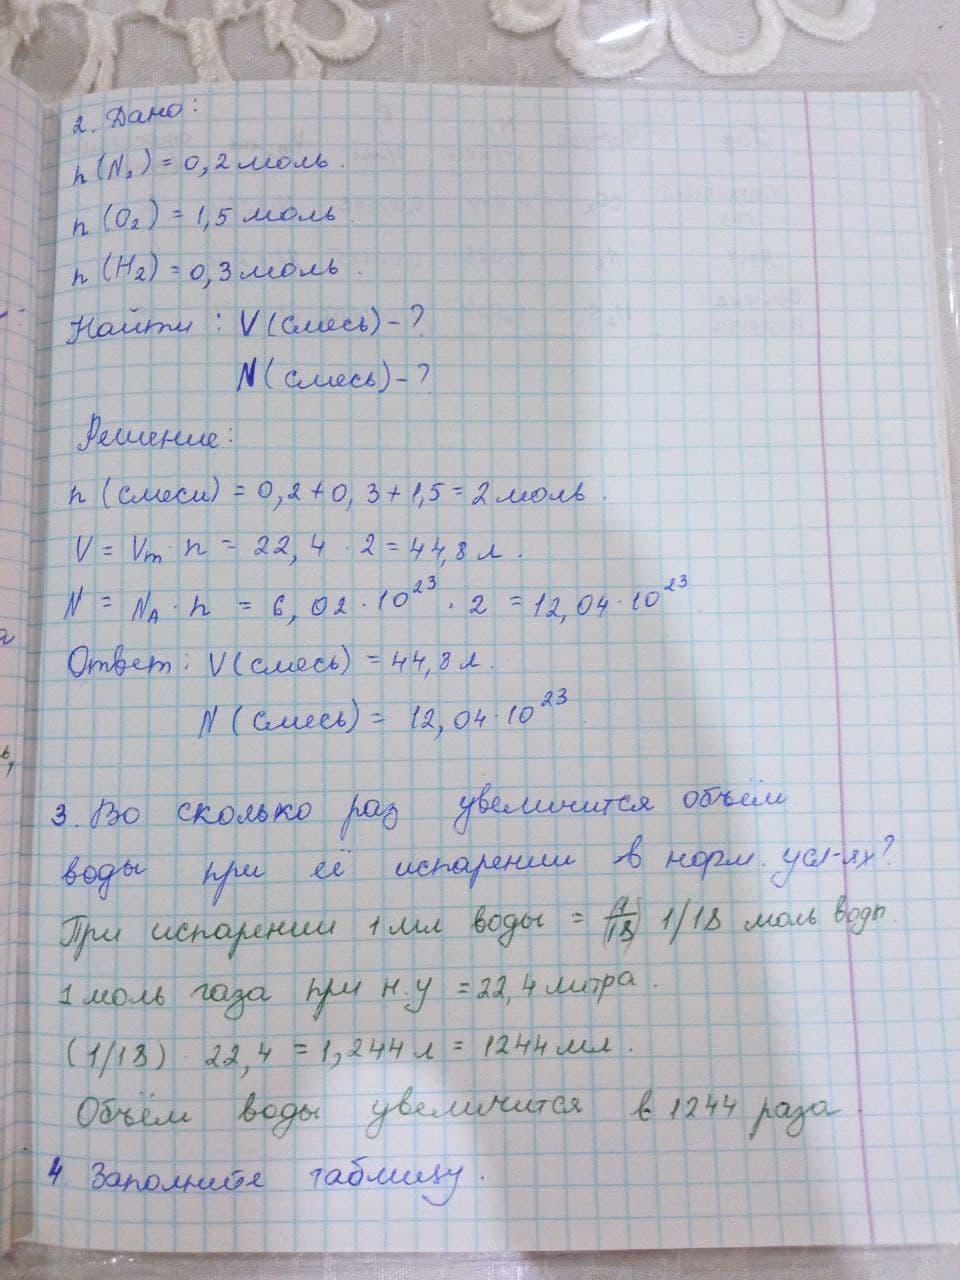 2. Дано:
n(N₂) = 0,2 моль.
n(O₂) = 1,5 моль.
n(H₂) = 0,3 моль.
Найти: V(смесь) - ?
N(смесь) - ?
Решение:
n(смеси) = 0,2 + 0,3 + 1,5 = 2 моль.
V = Vm · n = 22,4 · 2 = 44,8 л.
N = N_A · n = 6,02 · 10²³ · 2 = 12,04 · 10²³
Ответ: V(смесь) = 44,8 л.
N(смесь) = 12,04 · 10²³
3. Во сколько раз увеличится объём
воды при её испарении в норм. усл-ях?
При испарении 1 мл воды = 1/18 моль воды.
1 моль газа при н.у = 22,4 литра.
(1/18) · 22,4 = 1,244 л = 1244 мл.
Объём воды увеличится в 1244 раза.
4 Заполните таблицу.